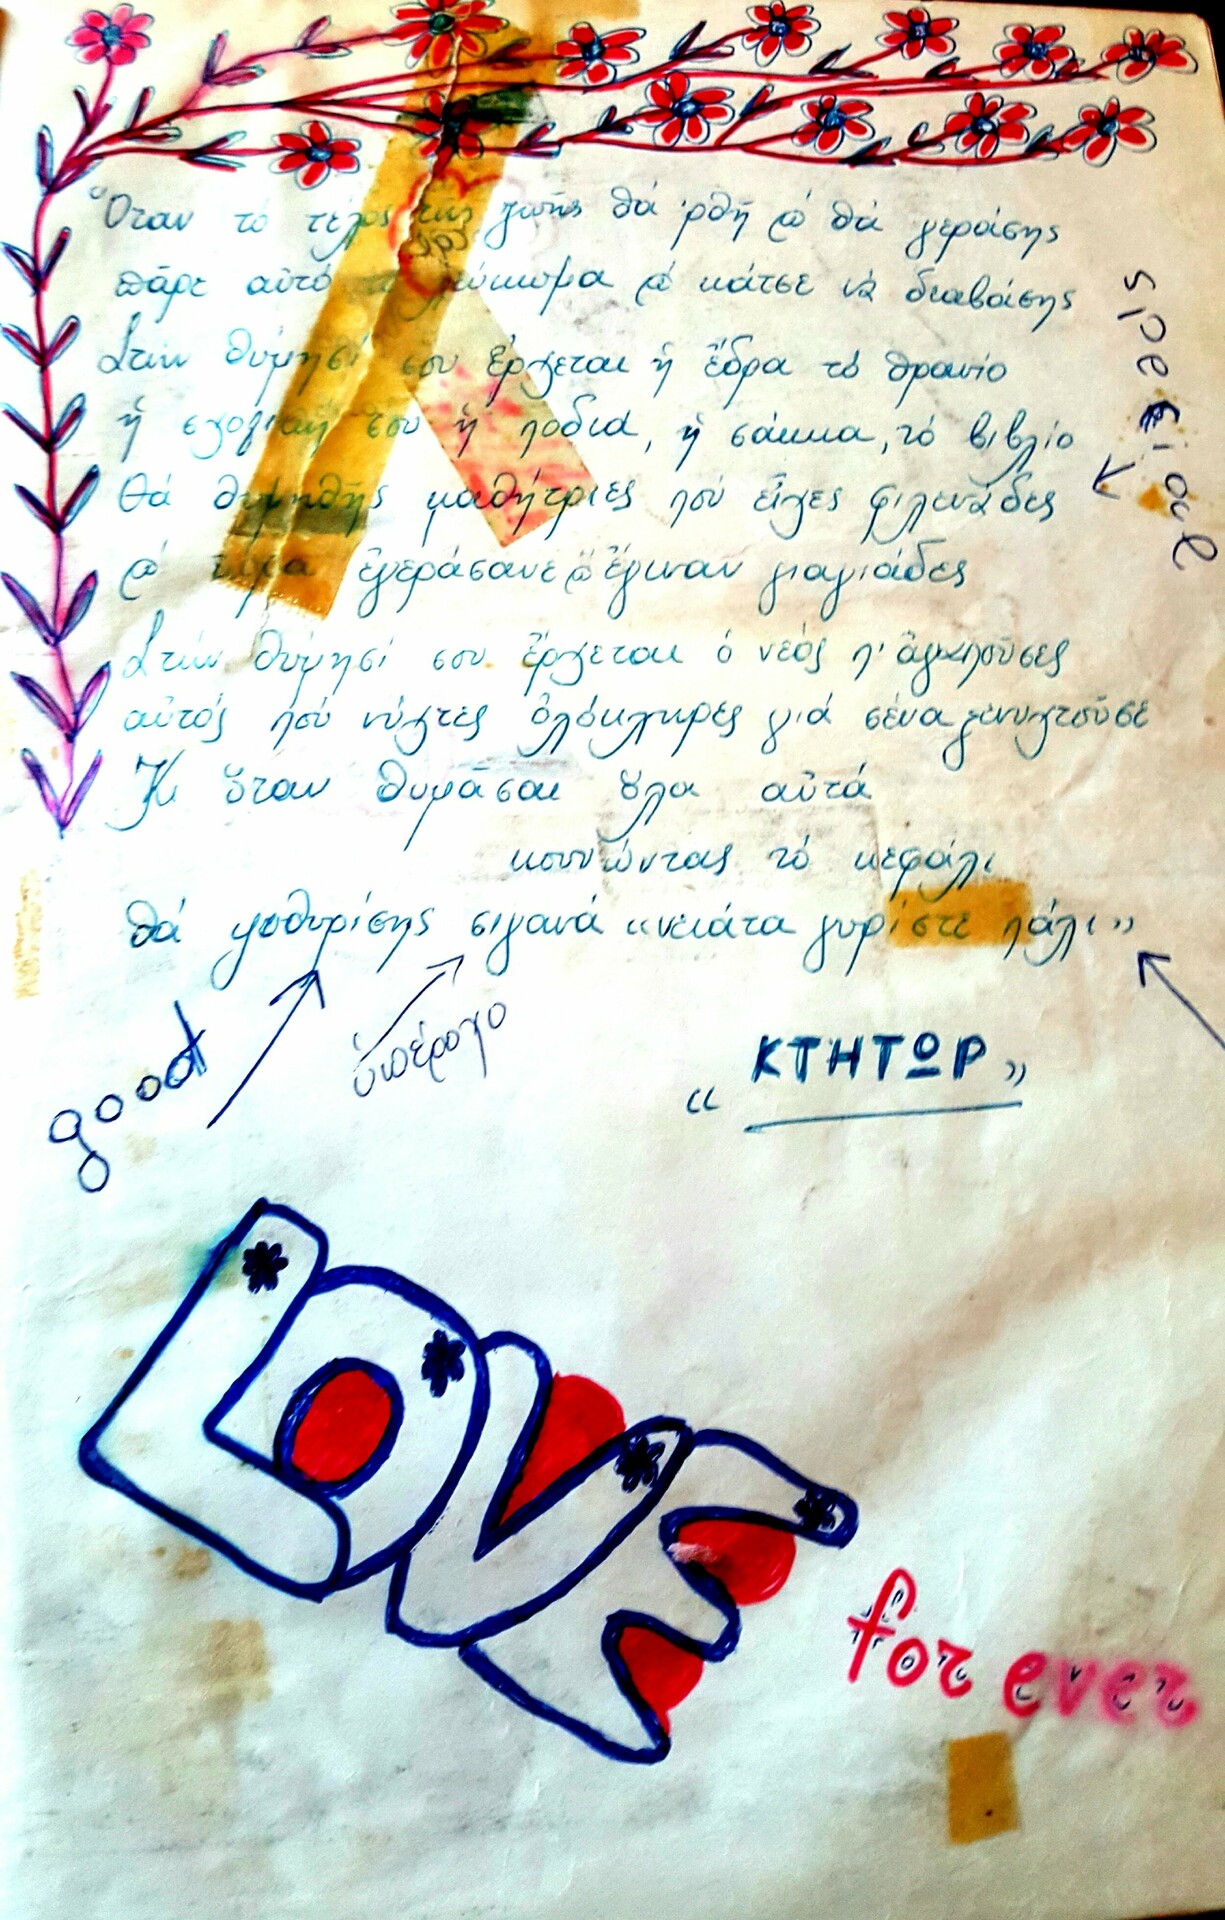 Ὅταν τό τέλος τῆς ζωῆς θά 'ρθῆ ϗ θά γεράσης
πᾶρε αὐτό τό λεύκωμα ϗ κάτσε νά διαβάσης
Στήν θύμησί σου ἔρχεται ἡ ἕδρα τό θρανίο
ἡ σχολική σου ἡ ποδιά, ἡ σάκκα, τό βιβλίο
Θά θυμηθῆς μαθήτριες πού εἶχες φιλενάδες
ϗ τώρα ἐγεράσανε ϗ ἔγιναν γιαγιάδες
Στήν θύμησί σου ἔρχεται ὁ νεός π' ἀγαποῦσες
αὐτός πού νύχτες ὁλόκληρες γιά σένα ξενυχτοῦσε
Κι ὅταν θυμᾶσαι ὅλα αὐτά
κουνώντας τό κεφάλι
θά ψυθυρίσης σιγανά «νειάτα γυρίστε πάλι»
good
ὑπέροχο
" ΚΤΗΤΩΡ "
LOVE
for ever